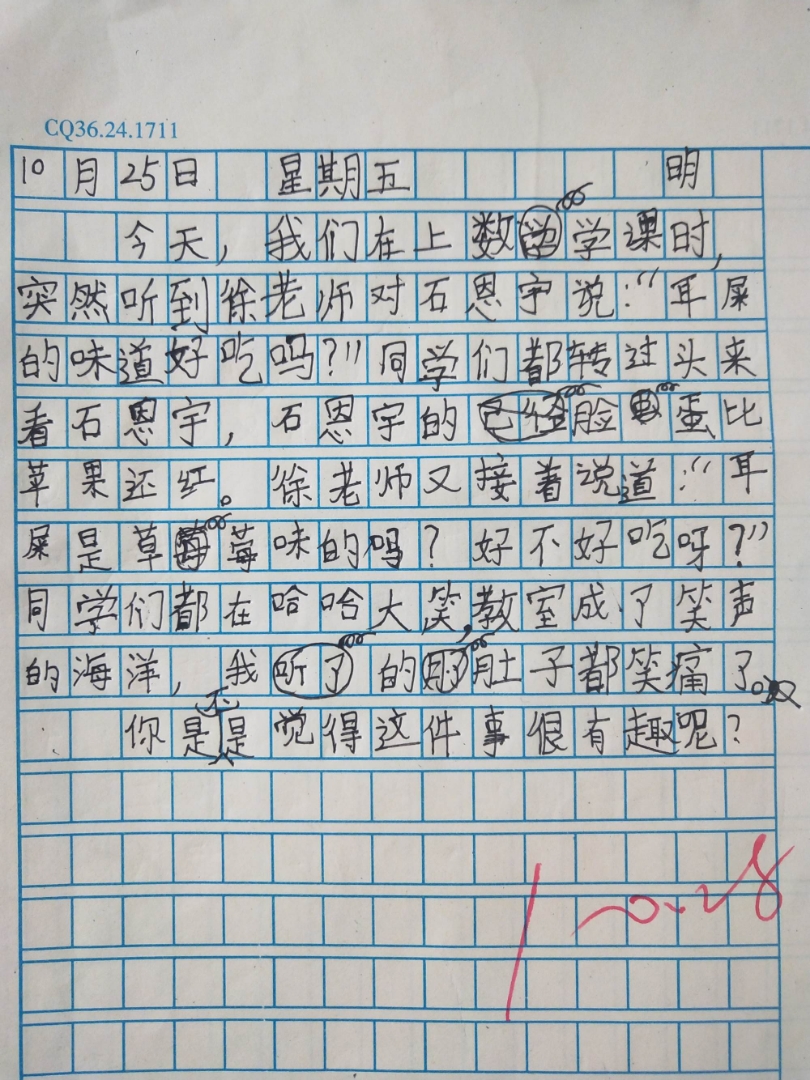 CQ36.24.1711
10月25日 星期五 明
今天，我们在上数学课时，
突然听到徐老师对石恩宇说：“耳屎
的味道好吃吗？”同学们都转过头来
看石恩宇，石恩宇的脸蛋比
苹果还红。徐老师又接着说道：“耳
屎是草莓味的吗？好不好吃呀？”
同学们都在哈哈大笑，教室成了笑声
的海洋，我的肚子都笑痛了。
你是不是觉得这件事很有趣呢？
10.28